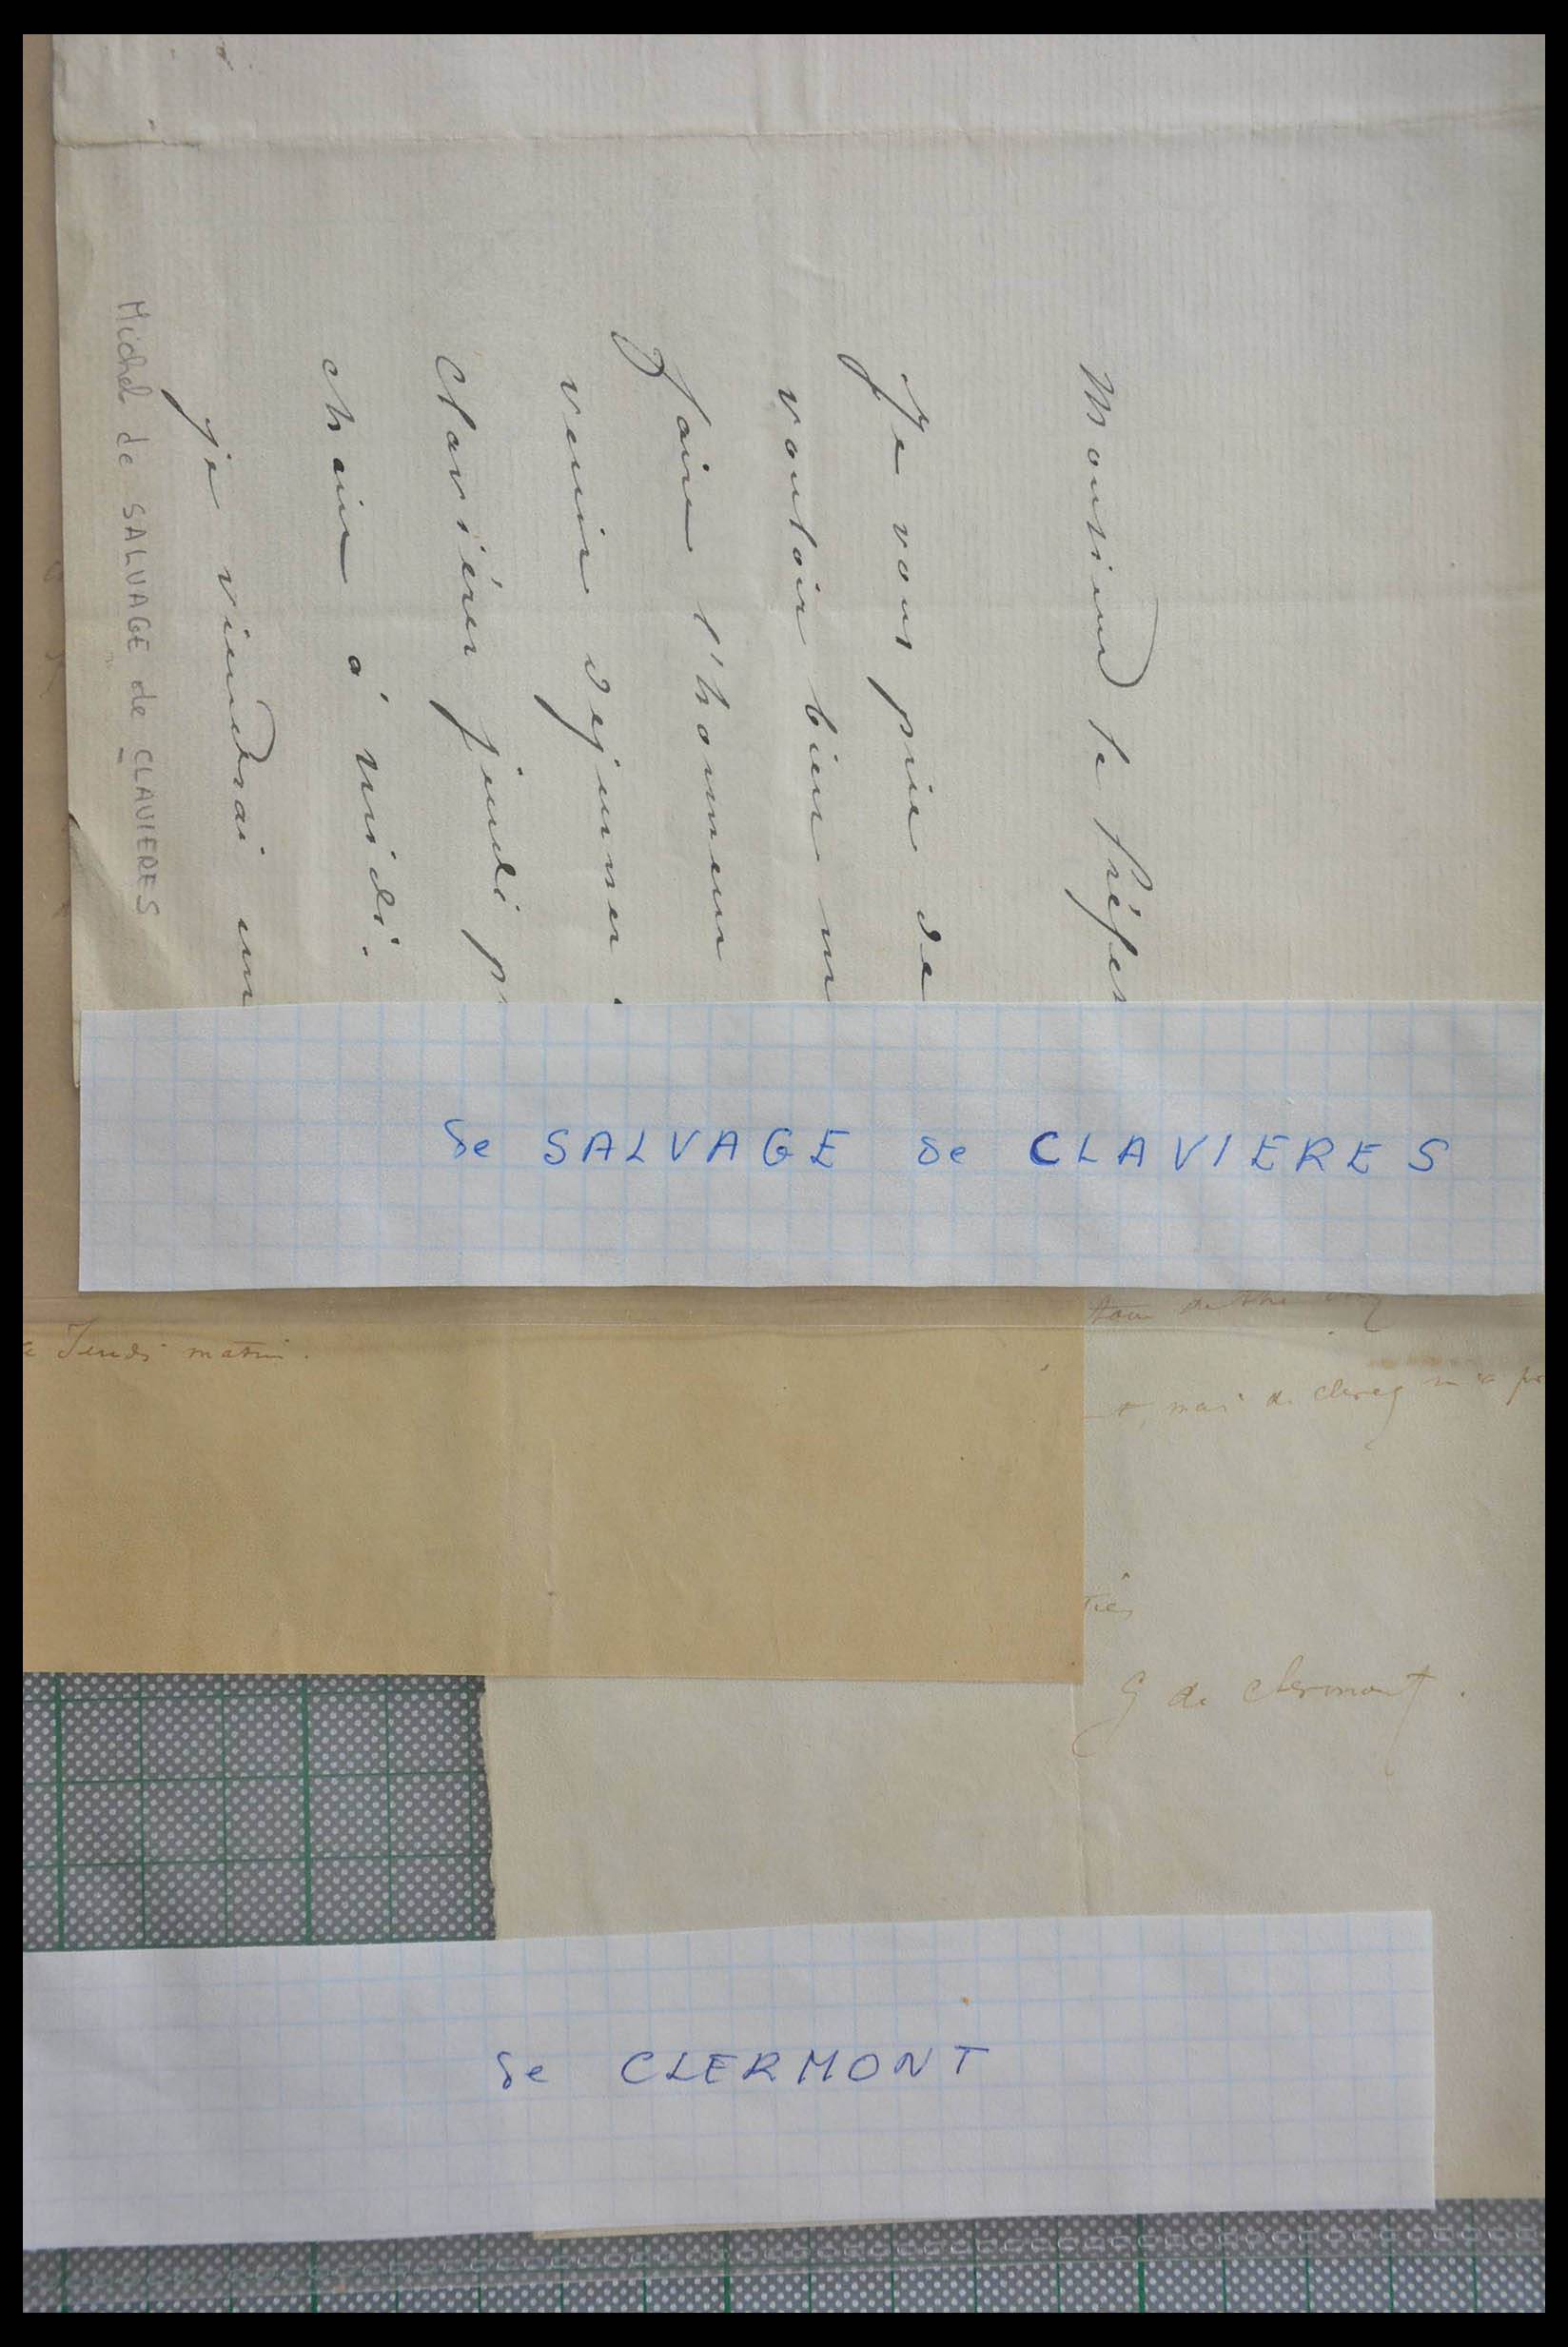 Monsieur le Préfet
Je vous prie de
vouloir bien m
faire l'honneur
venir dejeuner
Clavières jeudi p
chain à midi.
je viendrai
Michel de SALVAGE de CLAVIERES
de SALVAGE de CLAVIERES
Jeudi matin.
mais de Clercq m'a
G de Clermont.
de CLERMONT